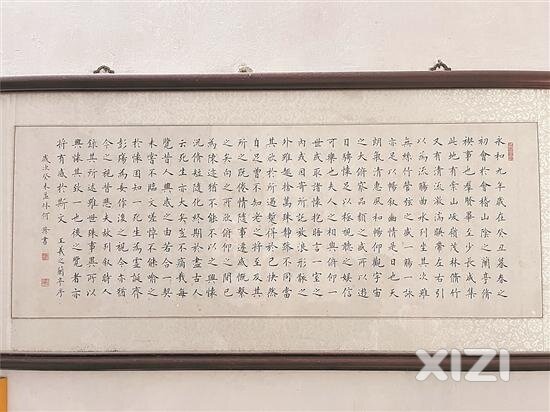 永和九年歲在癸丑暮春之
初會於會稽山陰之蘭亭脩
禊事也群賢畢至少長咸集
此地有崇山峻嶺茂林脩竹
又有清流激湍映帶左右引
以為流觴曲水列坐其次雖
無絲竹管弦之盛一觴一詠
亦足以暢敘幽情是日也天
朗氣清惠風和暢仰觀宇宙
之大俯察品類之盛所以遊
目騁懷足以極視聽之娛信
可樂也夫人之相與俯仰一
世或取諸懷抱晤言一室之
內或因寄所託放浪形骸之
外雖趣捨萬殊靜躁不同當
其欣於所遇暫得於己快然
自足曾不知老之將至及其
所之既倦情隨事遷感慨係
之矣向之所欣俯仰之間已
為陳迹猶不能不以之興懷
況脩短隨化終期於盡古人
云死生亦大矣豈不痛哉每
覽昔人興感之由若合一契
未嘗不臨文嗟悼不能喻之
於懷固知一死生為虛誕齊
彭殤為妄作後之視今亦猶
今之視昔悲夫故列敘時人
錄其所述雖世殊事異所以
興懷其致一也後之覽者亦
將有感於斯文 王羲之蘭亭序
歲次癸未孟 何 書
XIZI